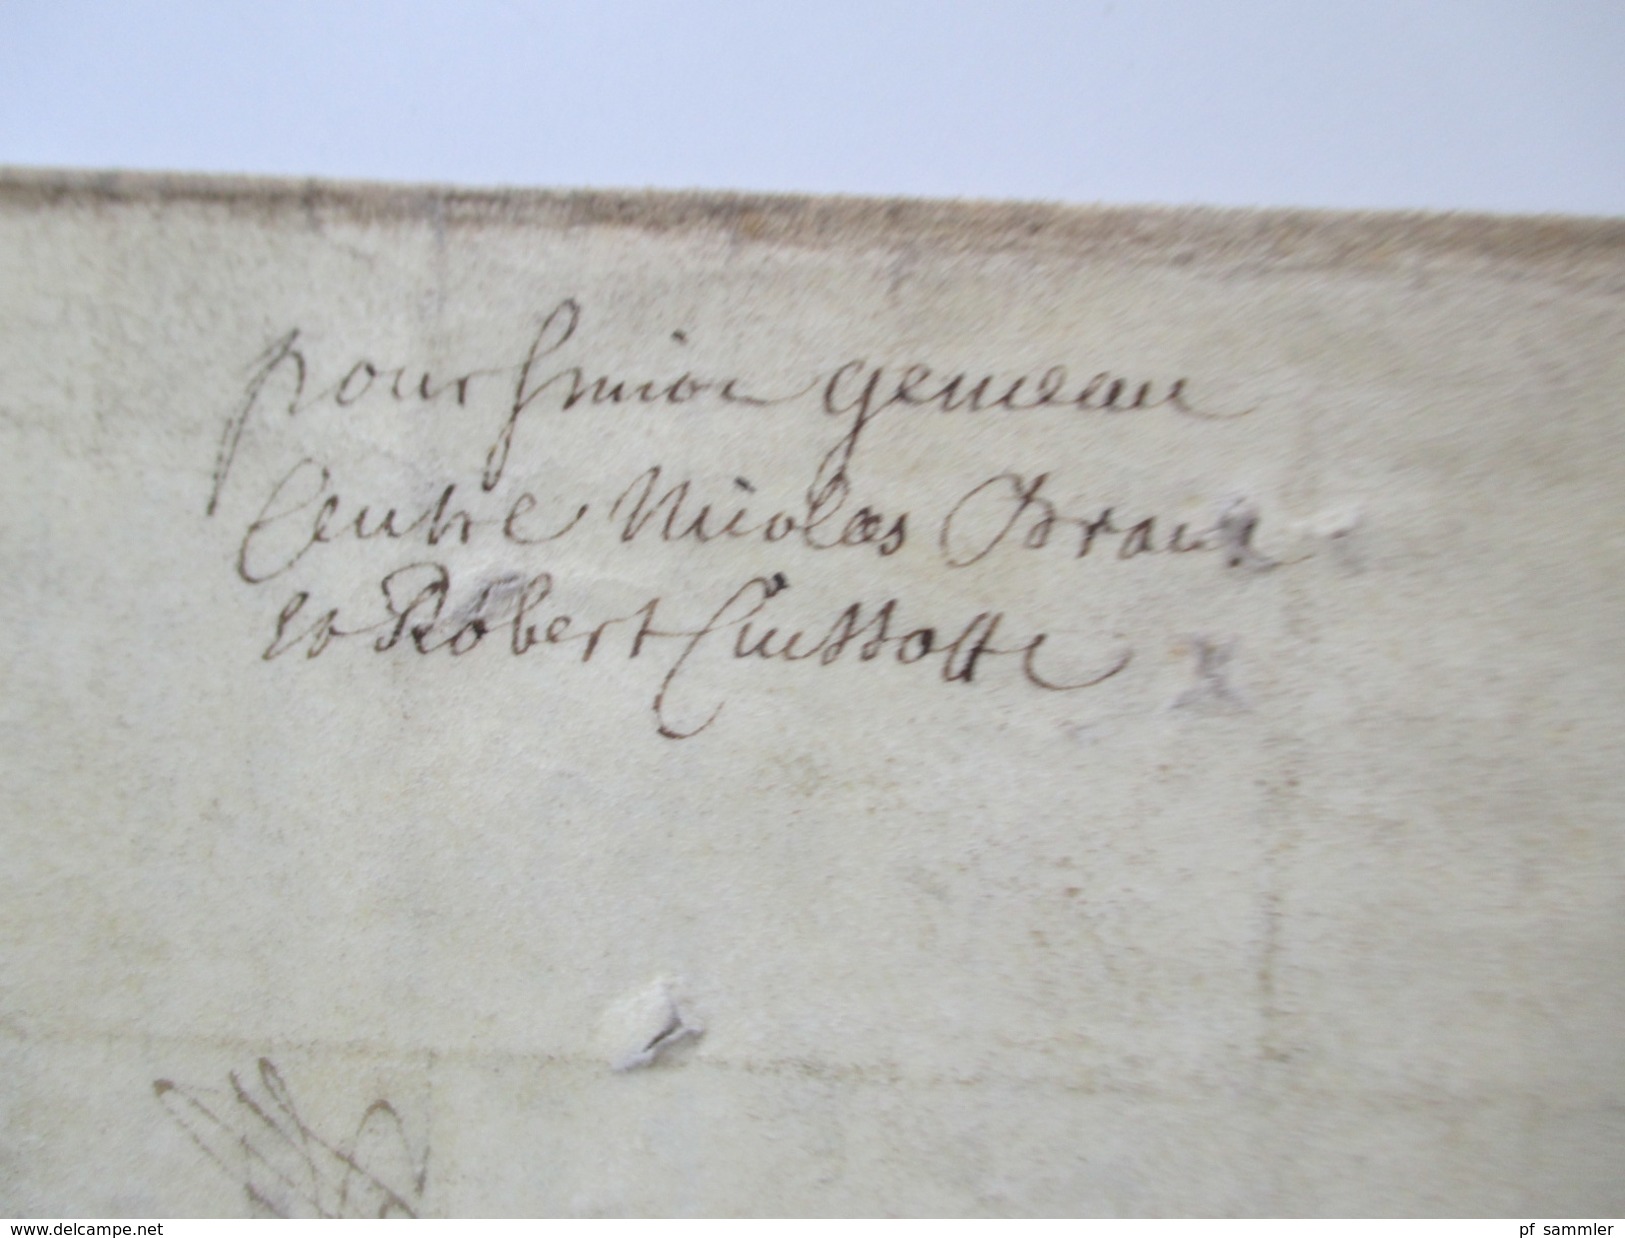 pour Simon gemeau
Contre Nicolas
et Robert Cuissotte
www.delcampe.net
pf_sammler